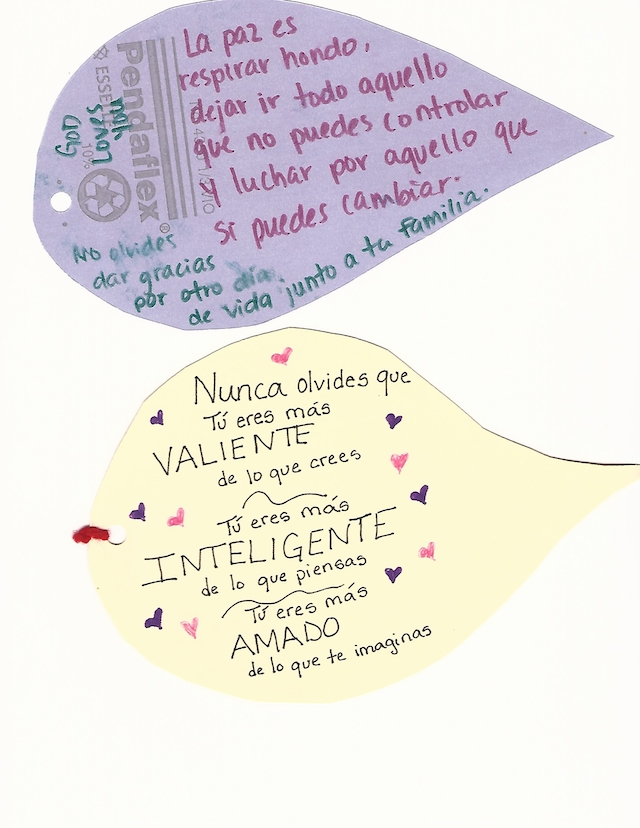 La paz es
respirar hondo,
dejar ir todo aquello
que no puedes controlar
y luchar por aquello que
si puedes cambiar.
No olvides
dar gracias
por otro día
de vida junto a tu familia.
GOD
Loves
You
Pendaflex®
ESSELTE
10%
Nunca olvides que
Tú eres más
VALIENTE
de lo que crees
Tú eres más
INTELIGENTE
de lo que piensas
Tú eres más
AMADO
de lo que te imaginas